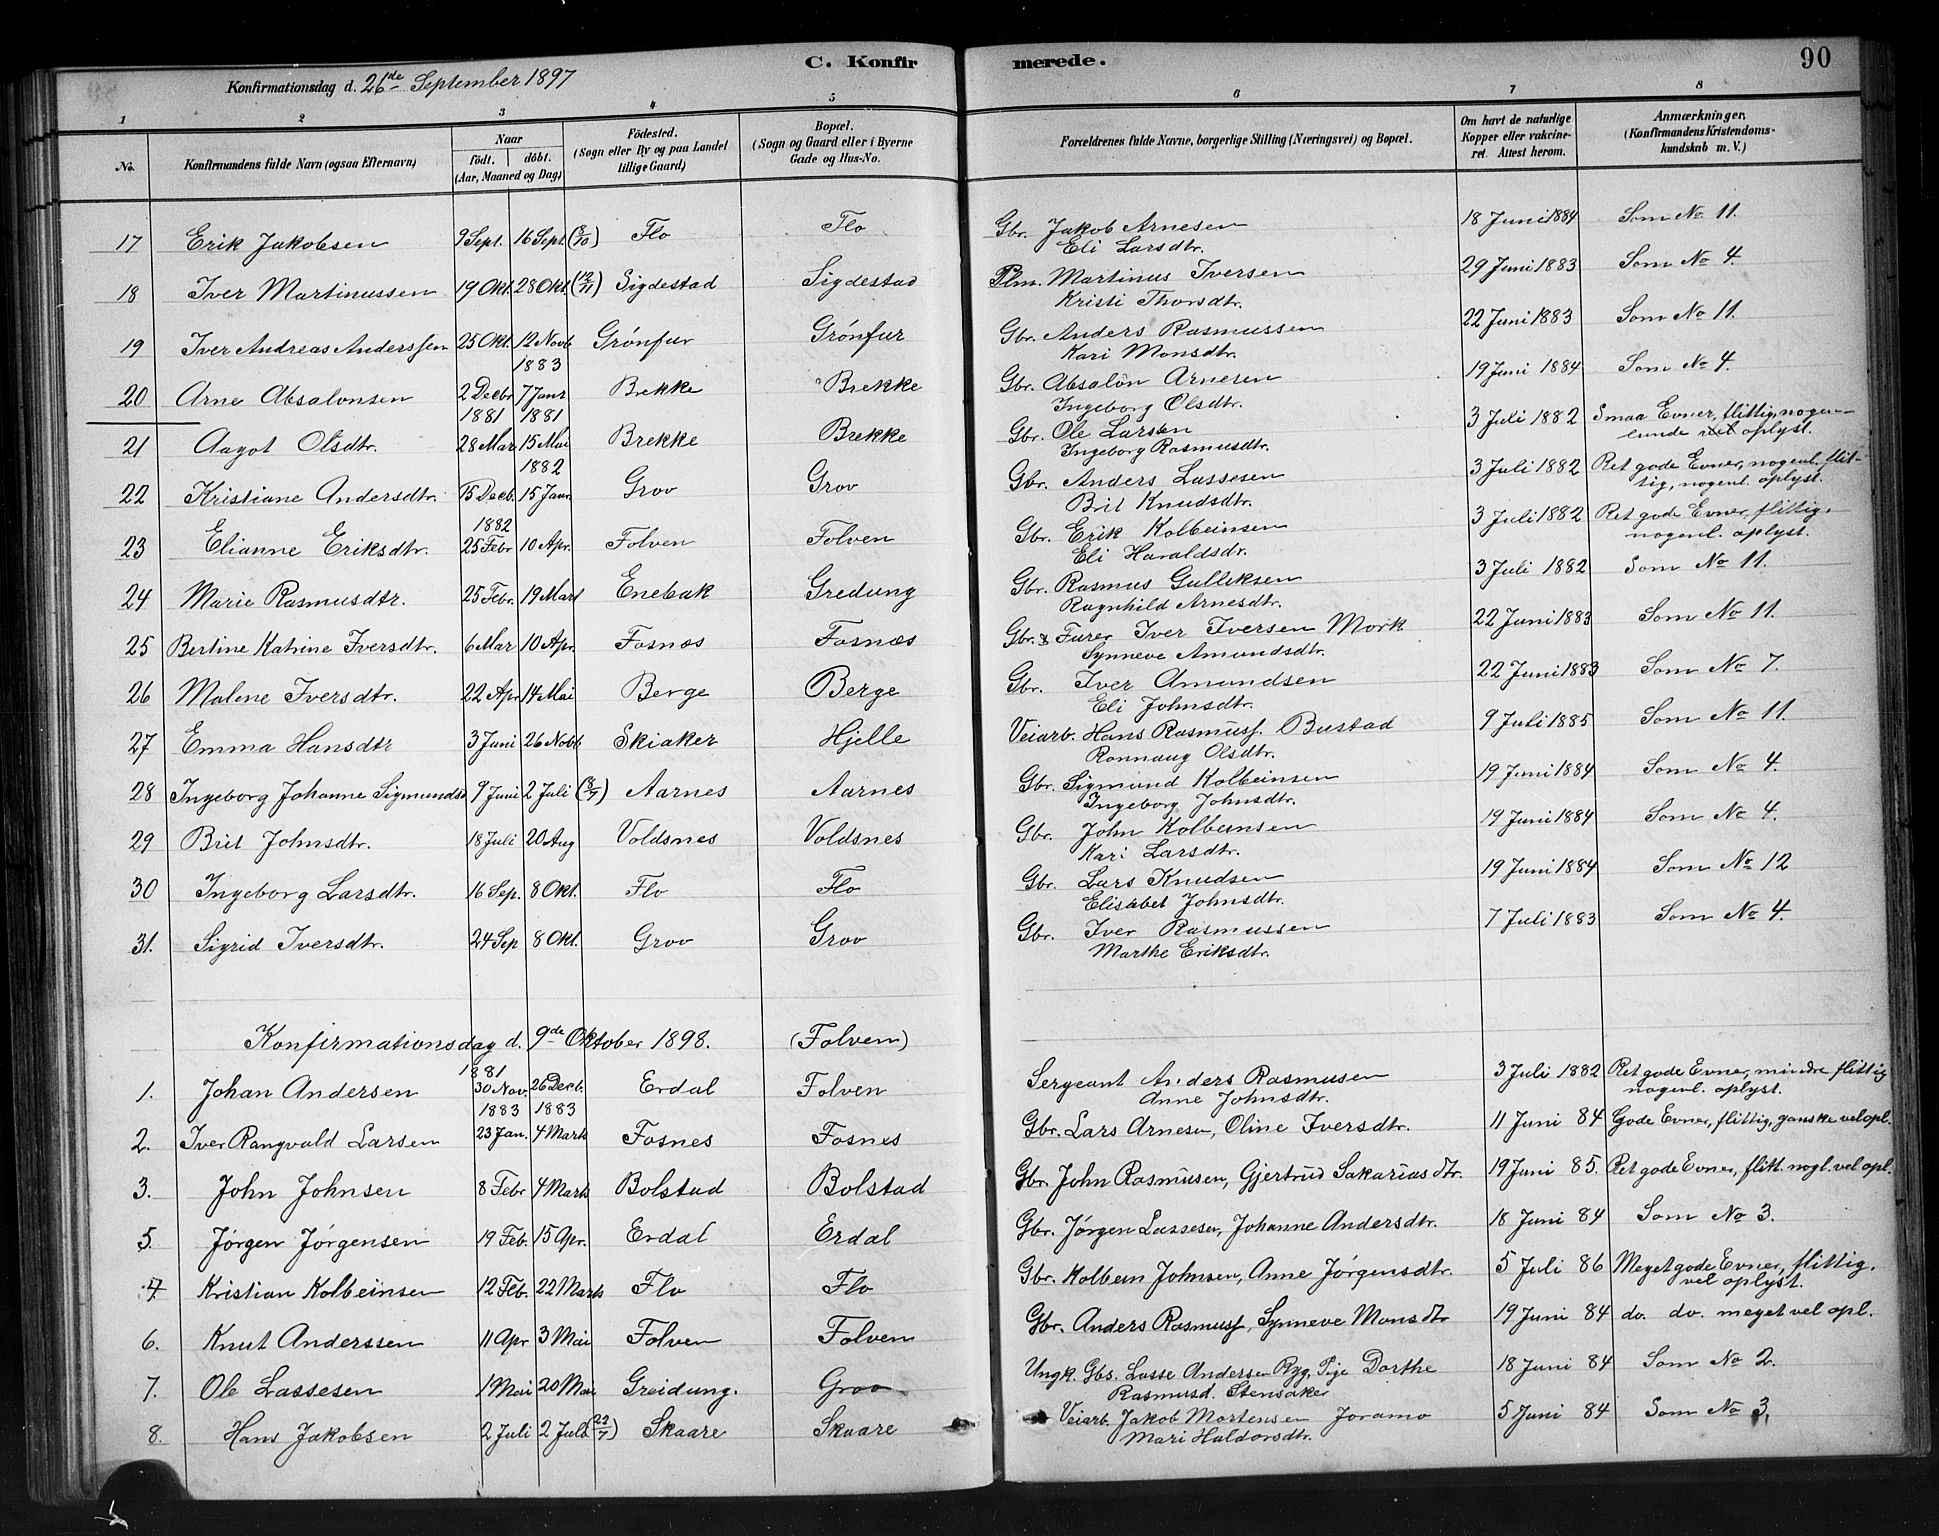 C. Konfirmerede. 90
Konfirmationsdag d. 26de September 1897
1 2 3 4 5 6 7 8
No. Konfirmandens fulde Navn (ogsaa Efternavn) Naar født. døbt. (Aar, Maaned og Dag) Födested. (Sogn eller By og paa Landet tillige Gaard) Bopæl. (Sogn og Gaard eller i Byerne Gade og Hus-No. Forældrenes fulde Navne, borgerlige Stilling (Næringsvei) og Bopæl. Om havt de naturlige Kopper eller vakcineret. Attest herom. Anmærkninger, (Konfirmandens Kristendomskundskab m. V.)
17 Erik Jakobsen 9 Sept. 16 Sept (8/10) Flo Flo Gbr. Jakob Arnesen 18 Juni 1884 Som No 11.
Eli Larsdtr.
18 Iver Martinussen 19 Okt. 28 Okt. (12/11) Sigdestad Sigdestad Plm. Martinus Iversen 29 Juni 1883 Som No 4.
Kristi Thorsdtr.
19 Iver Andreas Anderssen 25 Okt. 12 Novb Grónfur Grónfur Gbr. Anders Rasmussen 22 Juni 1883 Som No 11.
Kari Monsdtr.
1883
20 Arne Absalonsen 2 Decbr 7 Janr Brekke Brekke Gbr. Absalon Arnesen 19 Juni 1884 Som No 4.
Ingeborg Olsdtr.
1881 1881
21 Aagot Olsdtr. 28 Mar 15 Mai Brekke Brekke Gbr. Ole Larsen 3 Juli 1882 Smaa Evner, flittig, nogen-
Ingeborg Rasmusdtr. lunde vel oplyst.
1882
22 Kristiane Andersdtr. 15 Decb. 15 Janr. Grov Grov Gbr. Anders Lassesen 3 Juli 1882 Ret gode Evner, nogenl. flit-
Brit Knudsdtr. tig, nogenl. oplyst.
1882
23 Elianne Eriksdtr. 25 Febr 10 Apr. Folven Folven Gbr. Erik Kolbeinsen 3 Juli 1882 Ret gode Evner, flittig,
Eli Haraldsdr. nogenl. oplyst.
24 Marie Rasmusdtr. 25 Febr. 19 Mart Enebak Gredung Gbr. Rasmus Gulleksen 3 Juli 1882 Som No 11.
Ragnhild Arnesdtr.
25 Bertine Katrine Iversdtr. 6 Mar 10 Apr. Fosnæs Fosnæs Gbr. & Furer Iver Iversen Mork 22 Juni 1883 Som No 11.
Synneve Amundsdtr.
26 Malene Iversdtr. 22 Apr 14 Mai Berge Berge Gbr. Iver Amundsen 22 Juni 1883 Som No 7.
Eli Johnsdtr.
27 Emma Hansdtr 3 Juni 26 Novb Skiaker Hjelle Veiarb. Hans Rasmuss. Bustad 9 Juli 1885 Som No 11.
Ronnaug Olsdtr.
28 Ingeborg Johanne Sigmundsd 9 Juni 2 Juli Aarnes Aarnes Gbr. Sigmund Kolbeinsen 19 Juni 1884 Som No 4.
Ingeborg Johnsdtr.
29 Brit Johnsdtr. 18 Juli 20 Aug Voldsnes Voldsnes Gbr. John Kolbeinsen 19 Juni 1884 Som No 4.
Kari Larsdtr.
30 Ingeborg Larsdtr. 16 Sep. 8 Okt. Flo Flo Gbr. Lars Knudsen 19 Juni 1884 Som No 12
Elisabet Johnsdtr.
31. Sigrid Iversdtr. 24 Sep 8 Okt. Grov Grov Gbr. Iver Rasmussen 7 Juli 1883 Som No 4.
Marthe Eriksdtr.
Konfirmationsdag d. 9de Oktober 1898. (Folven)
1881
1. Johan Andersen 30 Nov. 26 Decb. Erdal Folven Sergeant Anders Rasmusen 3 Juli 1882 Ret gode Evner, mindre flittig
Anne Johnsdtr. nogenl. oplyst.
1883 1883
2. Iver Rangvald Larsen 23 Jan. 4 Marts Fosnes Fosnes Gbr. Lars Arnesen, Oline Iversdtr. 11 Juni 84 Gode Evner, flittig, ganske vel opl.
3. John Johnsen 8 Febr 4 Marts Bolstad Bolstad Gbr. John Rasmusen, Gjertrud Sakariasdtr. 19 Juni 85. Ret gode Evner, flitt. nogl. vel opl.
5. Jørgen Jørgensen 19 Feb. 15 Apr. Erdal Erdal Gbr. Jørgen Lassesen, Johanne Andersdtr. 18 Juni 84 Som No 3.
4. Kristian Kolbeinsen 12 Feb. 22 Marts Flo Flo Gbr. Kolbein Johnsen, Anne Jørgensdtr. 5 Juli 86 Meget gode Evner, flittig,
vel oplyst.
6. Knut Anderssen 11 Apr 3 Mai Folven Folven Gbr. Anders Rasmuss, Synneve Monsdtr 19 Juni 84 do. do. meget vel opl.
7. Ole Lassesen 1 Mai 20 Mai Greidung. Grov Ungk. Gbs. Lasse Andersen Ryg, Pige Dorthe 18 Juni 84 Som No 2.
Rasmusd. Stensaker
8. Hans Jakobsen 2 Juli 2 Juli (22/7) Skaare Skaare Veiarb. Jakob Mortensen Joramo 5 Juni 84 Som No 3.
Mari Haldorsdtr.